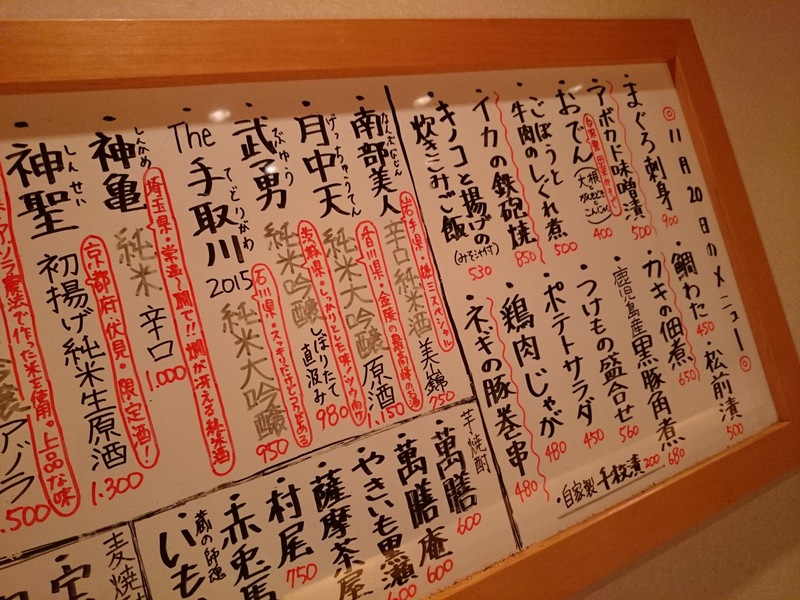 ◎11月20日のメニュー◎
・まぐろ刺身 900
・アボカド味噌漬 500
・おでん 400
大根
こんにゃく
・ごぼうとれ煮 500
・牛肉のしぐれ煮
・イカの鉄砲焼 850
・キノコと揚げの
炊きこみご飯
(みそ汁付) 530
・鯛わた 450
・松前漬 500
・カキの佃煮 650
・鹿児島産黒豚角煮 680
・つけもの盛合せ 560
・ポテトサラダ 450
・鶏肉じゃが 480
・ネギの豚巻串 480
・自家製 千枚漬 200
・南部美人
辛口純米酒 美山錦 750
岩手県・
スペシャル
・月中天
げっちゅうてん
純米大吟醸 原酒 1.150
香川県・金陵の最高峰の酒
・武勇
ぶゆう
純米吟醸 しぼりたて
直汲み 980
茨城県・しっかりとした味!
・The 手取川 2015
てどりがわ
純米大吟醸 950
石川県・スッキリだけどコクがある
・神亀
しんかめ
純米 辛口 1.000
埼玉県・常温〜燗で!!燗が冴える純米酒
・神聖
しんせい
初揚げ純米生原酒 1.300
京都府・伏見・限定酒!
農法で作った米を使用。上品な味
アゾラ
.500
芋焼酎
・萬膳 600
・萬膳庵 600
・やきいも黒瀬 600
・薩摩茶屋
・村尾 750
・赤兎馬
蔵の師魂
・いも
麦焼酎